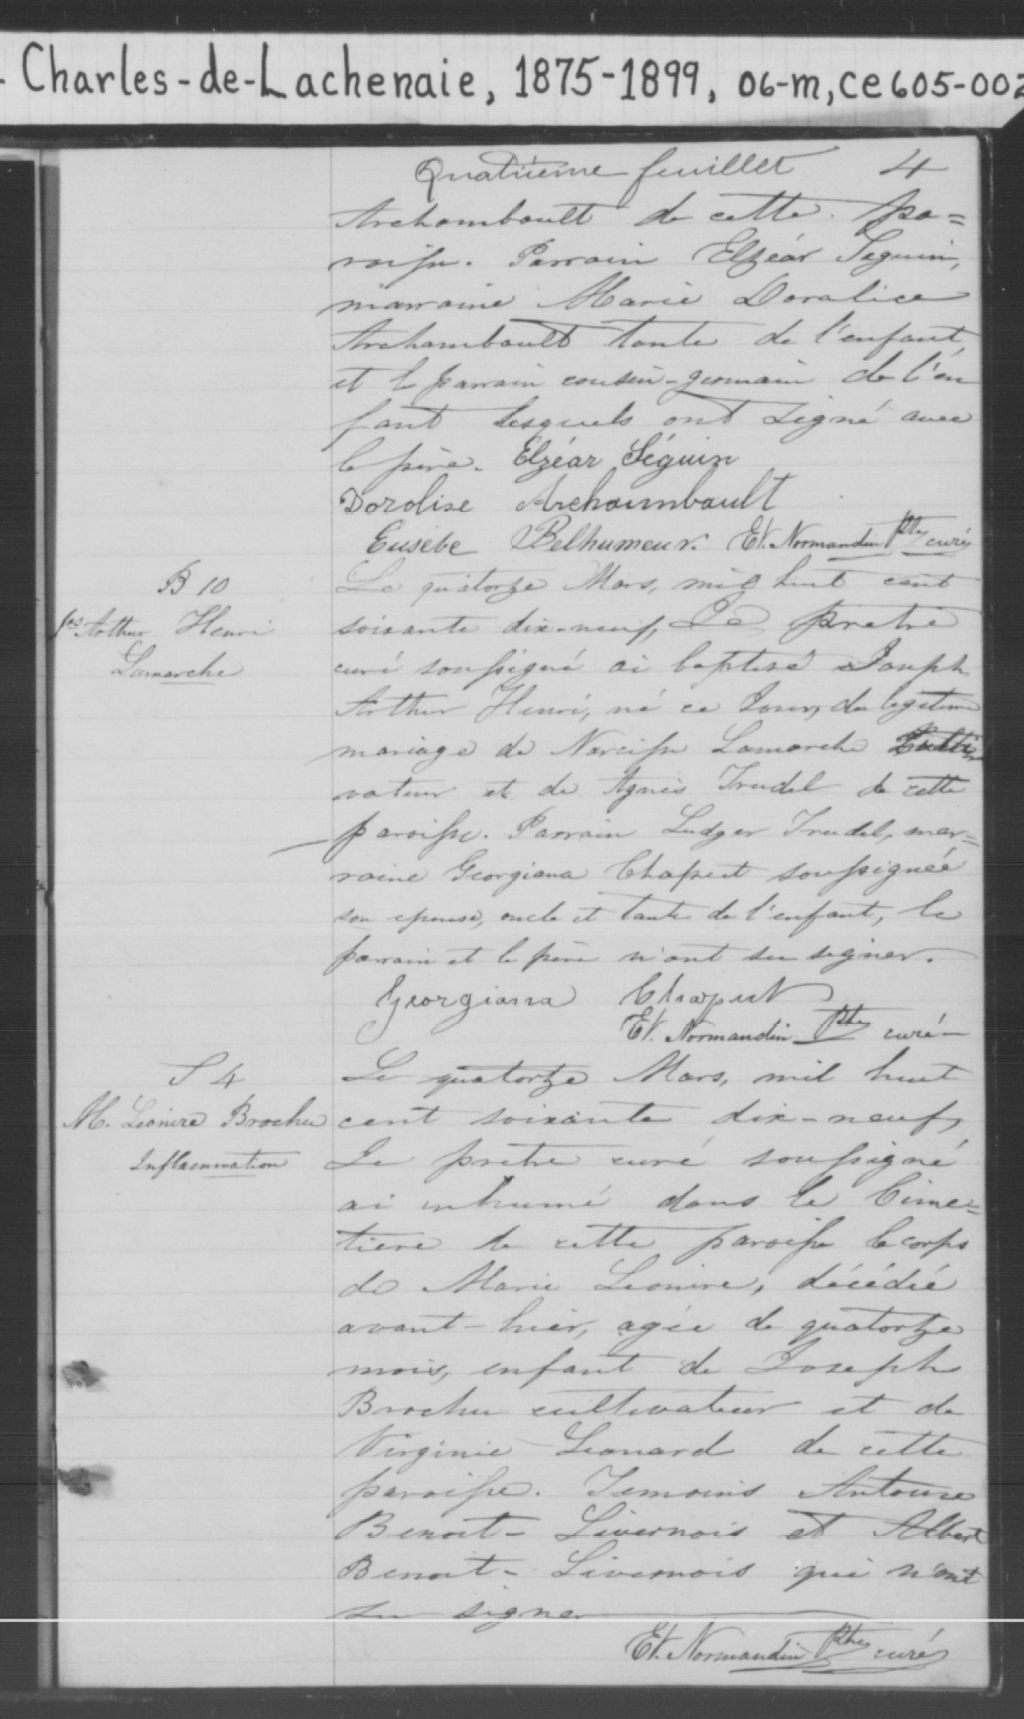 - Charles-de-Lachenaie, 1875-1899, 06-m, ce605-002
Quatrième feuillet 4
Archambault de cette pa=
roisse. Parrain Elzéar Seguin,
marraine Marie Doralice
Archambault tante de l'enfant,
et le parrain cousin-germain de l'en
fant lesquels ont signé avec
le père. Elzéar Séguin
Dorolise Archambault
Eusèbe Belhumeur. Et. Normandin Ptre curé
B 10
Jos Arthur Henri
Lamarche
Le quatorze Mars, mil huit cent
soixante dix-neuf, Je prêtre
curé soussigné ai baptisé Joseph
Arthur Henri, né ce jour, du legitime
mariage de Narcisse Lamarche Culti
vateur et de Agnès Trudel de cette
paroisse. Parrain Ludger Trudel, mar=
raine Georgiana Chaput soussignée
son epouse, oncle et tante de l'enfant, le
parrain et le père n'ont su signer.
Georgianna Chaput
Et. Normandin Ptre curé
S 4
M. Léonire Brochu
Inflammation
Le quatorze Mars, mil huit
cent soixante dix-neuf,
Je prêtre curé soussigné
ai inhumé dans le Cime=
tiere de cette paroisse le corps
de Marie Leonire, décédée
avant-hier, agée de quatorze
mois, enfant de Joseph
Brochu cultivateur et de
Virginie Leonard de cette
paroisse. Temoins Antoine
Benoit-Livernois et Albert
Benoit-Livernois qui n'ont
su signer
Et. Normandin Ptre curé